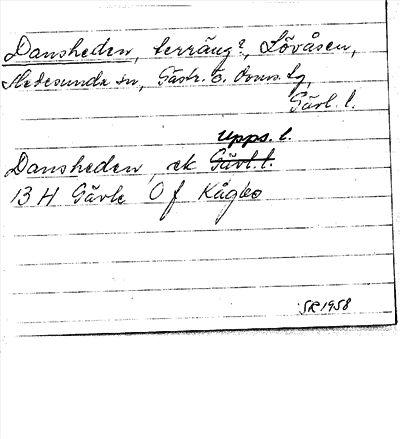 Dansheden, terräng?, Lövåsen,
Hedesunda sn, Gästr. Ö. Doms. tg,
Gävl. l.
Upps. l.
Dansheden, ek Gävl. l.
13 H Gävle 0 f Kågbo
SR 1958